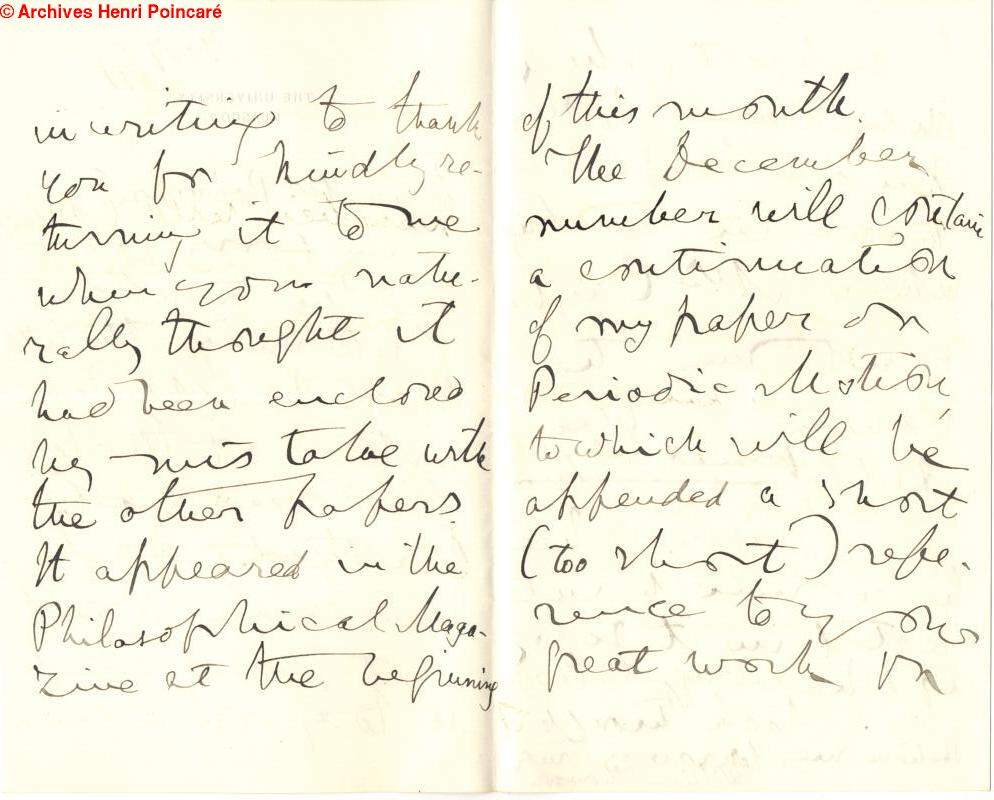 © Archives Henri Poincaré
in writing to thank
you for kindly re-
turning it to me
when you natu-
rally thought it
had been enclosed
by mistake with
the other papers.
It appeared in the
Philosophical Maga-
zine at the beginning
of this month.
The December
number will contain
a continuation
of my paper on
Periodic Motion,
to which will be
appended a short
(too short) refe-
rence to your
great work on